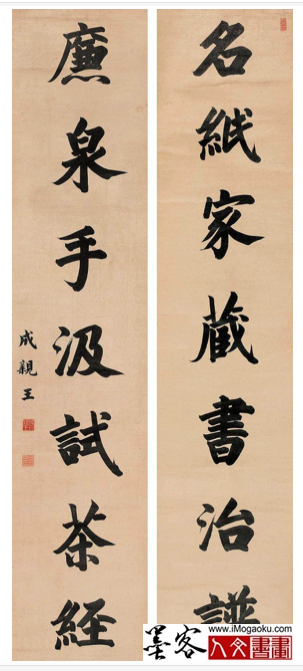 名紙家藏書治譜
廉泉手汲試茶経
成親王
墨客
www.iMogaoku.com
人文書畫